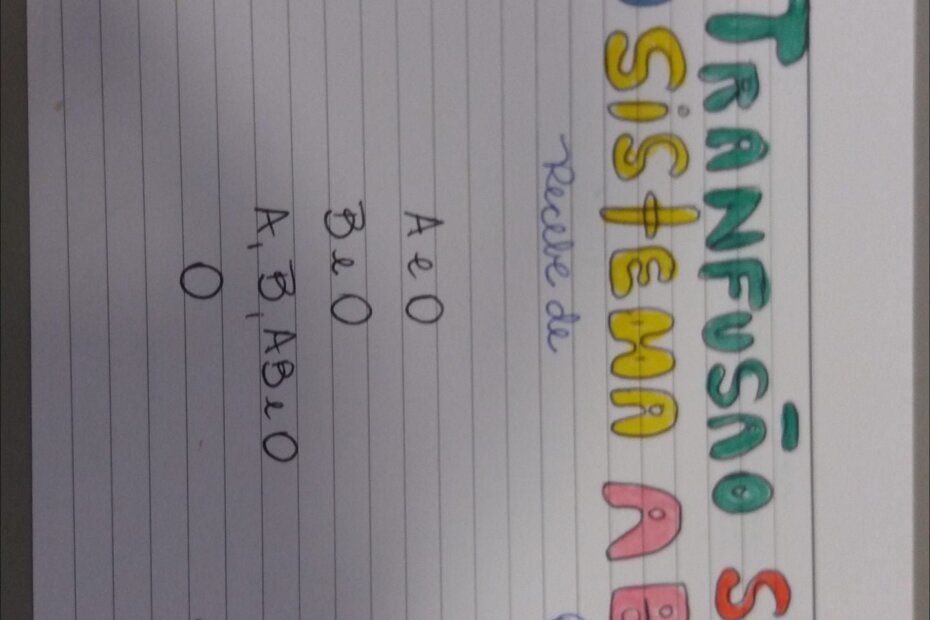 TRANFUSÃO S
SISTEMA AB
Recebe de
A e O
B e O
A, B, AB e O
O